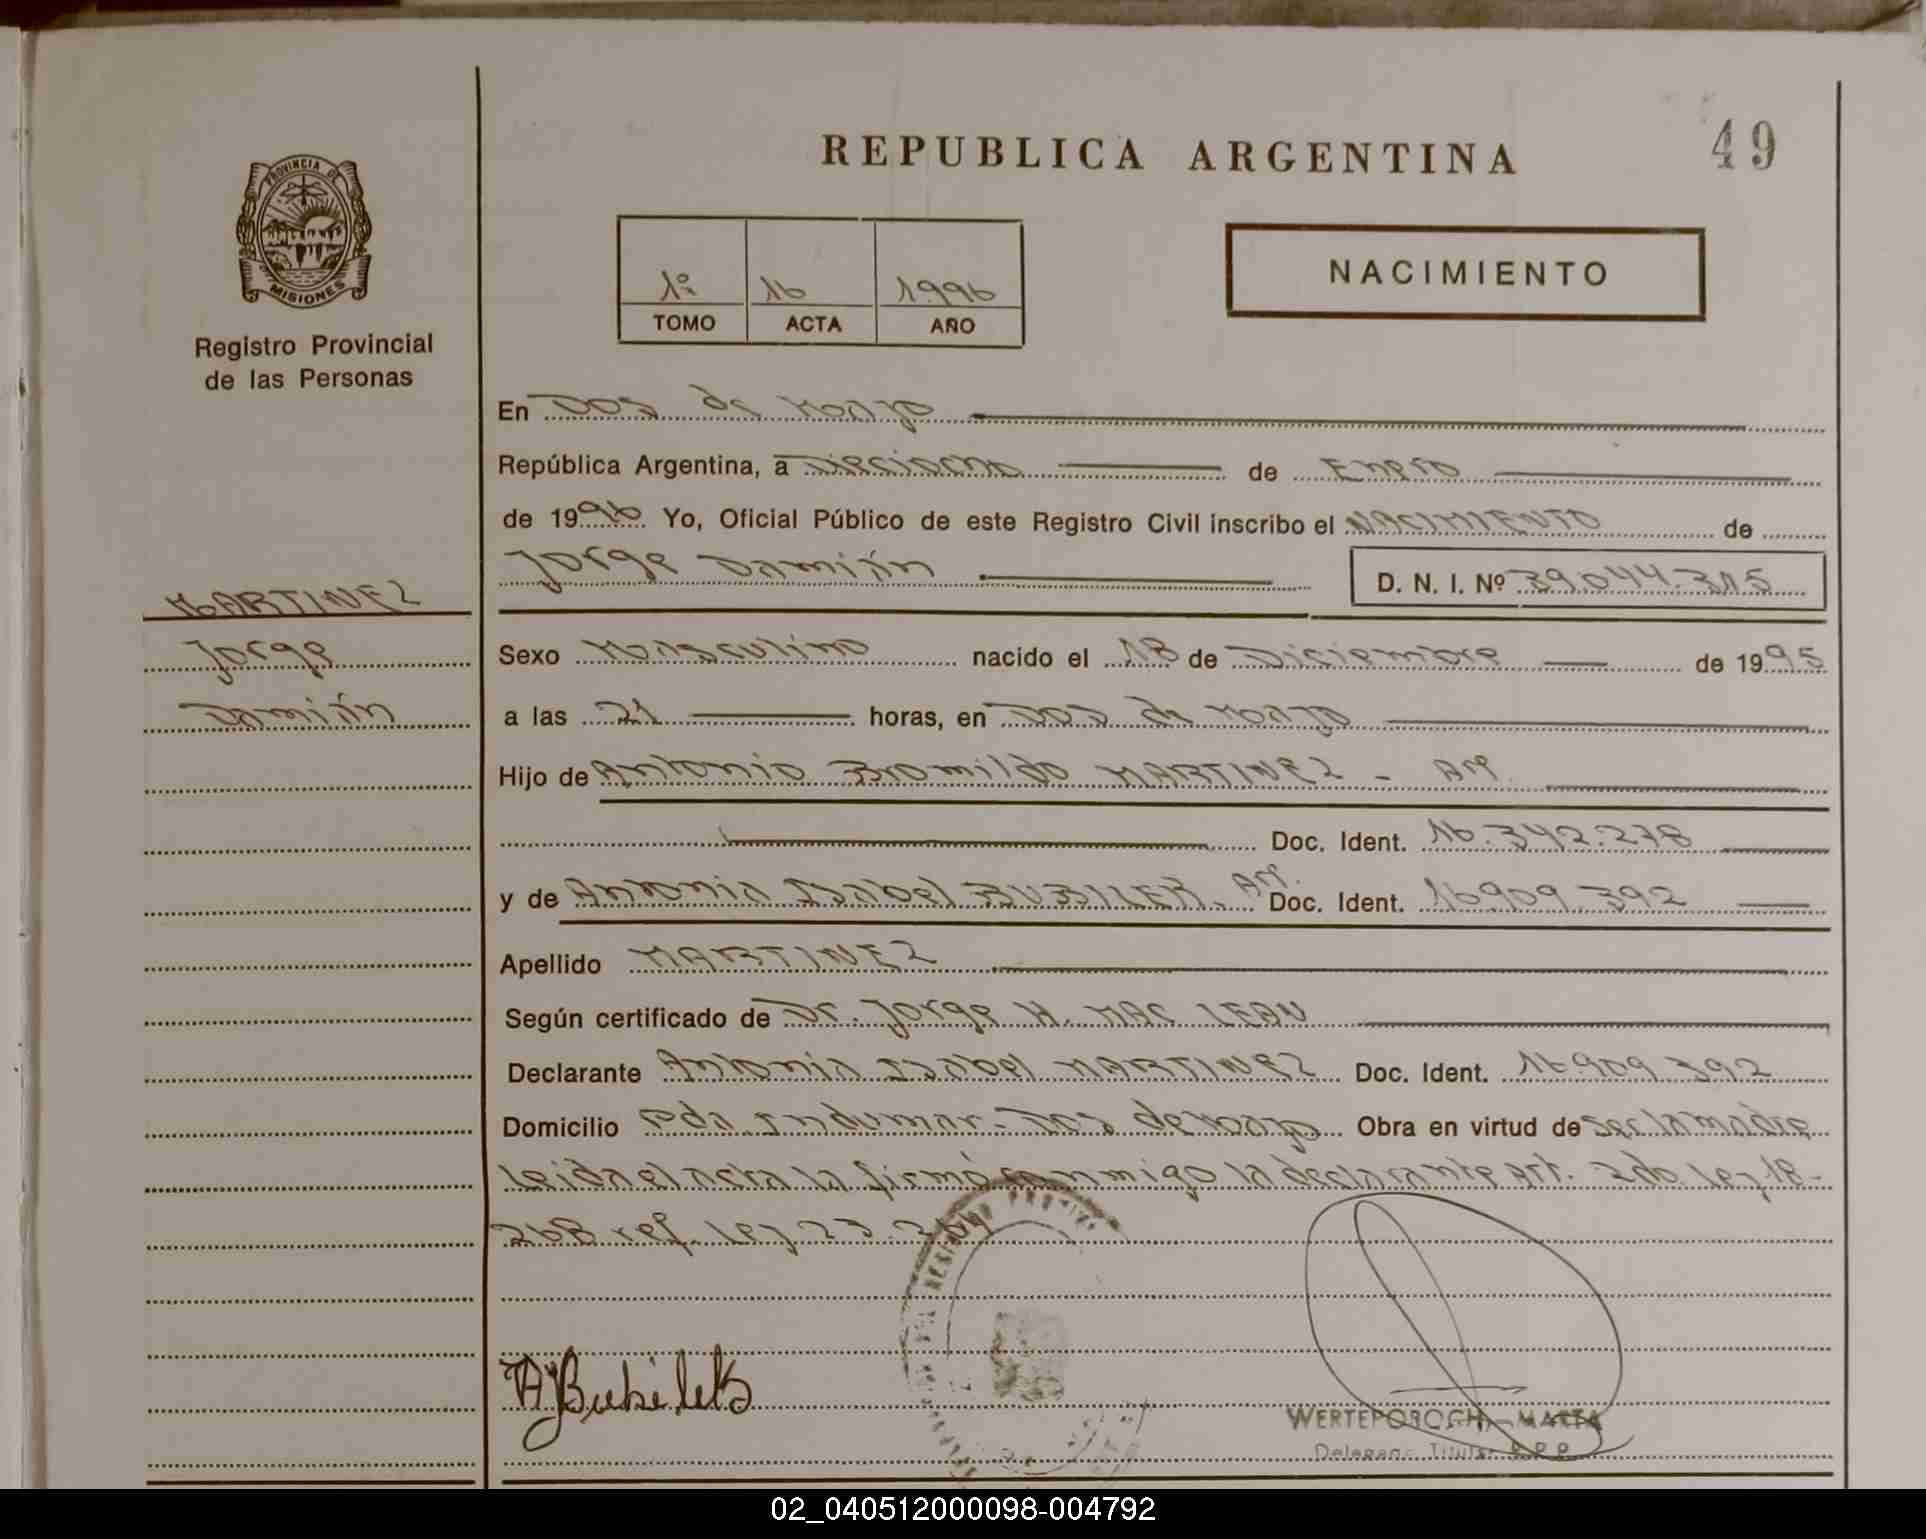 REPUBLICA ARGENTINA
49
PROVINCIA DE
MISIONES
Registro Provincial
de las Personas
1º 16 1996
TOMO ACTA AÑO
NACIMIENTO
En Dos de Mayo
República Argentina, a Dieciocho de Enero
de 1996 Yo, Oficial Público de este Registro Civil inscribo el NACIMIENTO de
Jorge Damián D. N. I. Nº 39.044.315
MARTINEZ
Jorge
Damián
Sexo Masculino nacido el 18 de Diciembre de 1995
a las 21 horas, en Dos de Mayo
Hijo de Antonio Bromildo MARTINEZ - Arg.
Doc. Ident. 16.342.278
y de Antonia Isabel Arg. Doc. Ident. 16909.392
Apellido MARTINEZ
Según certificado de Dr. Jorge H. MAC LEAN
Declarante Antonia Isabel MARTINEZ Doc. Ident. 16909392
Domicilio Pda. Indumar - Dos de Mayo Obra en virtud de ser la madre
Leida el acta la firmó conmigo la declarante Art. 2do. Ley 18-
268 ref. Ley 23.264
WERTEPOROCH, MARTA
Delegada Titular R.P.P.
02_040512000098-004792